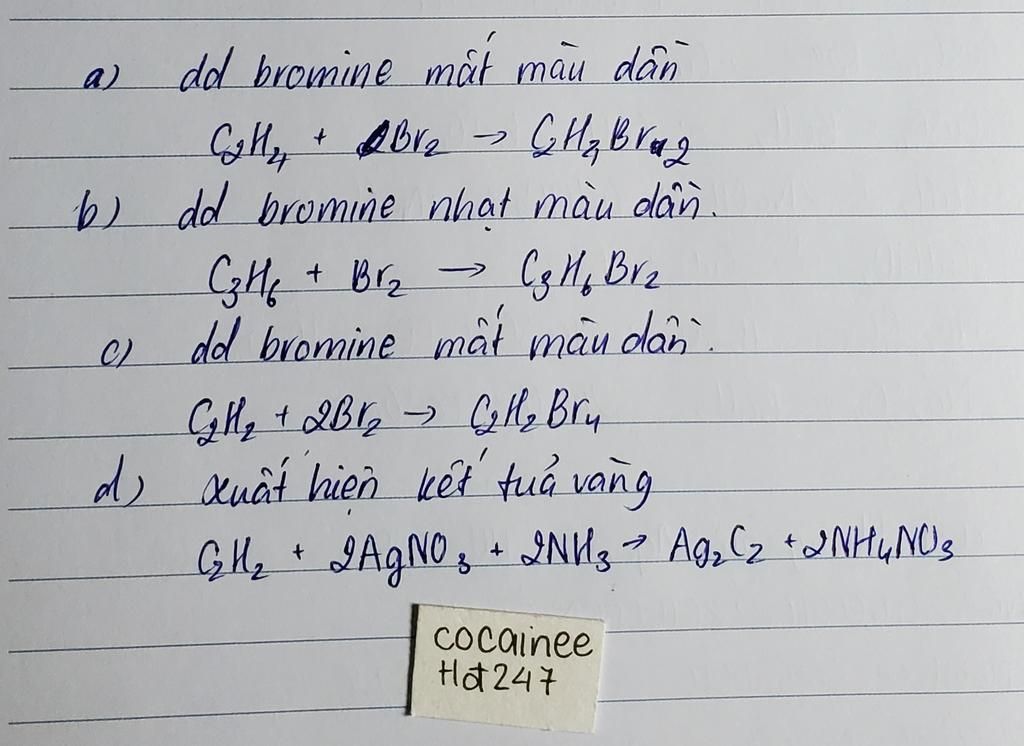 a) dd bromine mất màu dần
C₂H₄ + Br₂ → C₂H₄Br₂
b) dd bromine nhạt màu dần.
C₃H₆ + Br₂ → C₃H₆Br₂
c) dd bromine mất màu dần.
C₂H₂ + 2Br₂ → C₂H₂Br₄
d) xuất hiện kết tuả vàng
C₂H₂ + 2AgNO₃ + 2NH₃ → Ag₂C₂ + 2NH₄NO₃
cocainee
Hot247